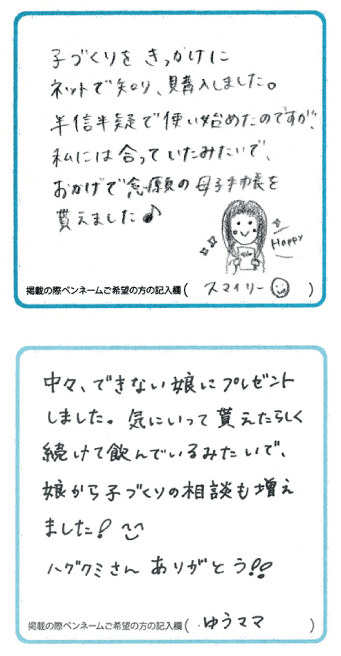 子づくりをきっかけに
ネットで知り、購入しました。
半信半疑で使い始めたのですが、
私には合っていたみたいで、
おかげで念願の母子手帳を
貰えました♪
Happy
掲載の際ペンネームご希望の方の記入欄( スマイリー )
中々、できない娘にプレゼント
しました。気にいって貰えたらしく
続けて飲んでいるみたいで、
娘から子づくりの相談も増え
ました!
ハグクミさんありがとう!!
掲載の際ペンネームご希望の方の記入欄( ゆうママ )